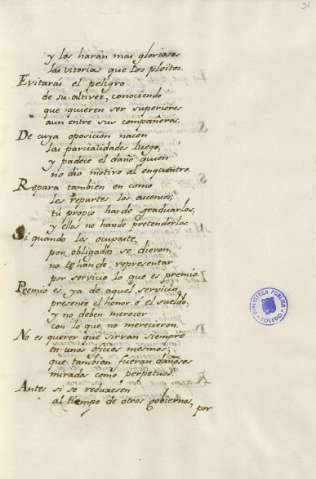 31
y las harán mas gloriosas
las vitorias que los pleitos.
Evitarás el peligro
de su altivez, conociendo
que quieren ser superiores
aun entre sus compañeros.
De cuya oposicion nacen
las parcialidades luego,
y padece el daño quien
no dio motivo al encuentro.
Repara tambien en como
les repartes los ascensos,
tu propio has de graduarlos,
y ellos no han de pretenderlos.
Si quando los ocupaste
por obligados se dieron,
no te han de representar
por servicio lo que es premio.
Premio es ya de aquel servicio
presente el honor ó el sueldo,
y no deben merecer
con lo que no merecieron.
No es querer que sirvan siempre
en unos oficios mesmos,
que tambien fueran dañosos
mirados como perpetuos.
Antes si se reduxesen
al tiempo de otros gobiernos,
por
BIBLIOTECA PUBLICA
TOLEDO